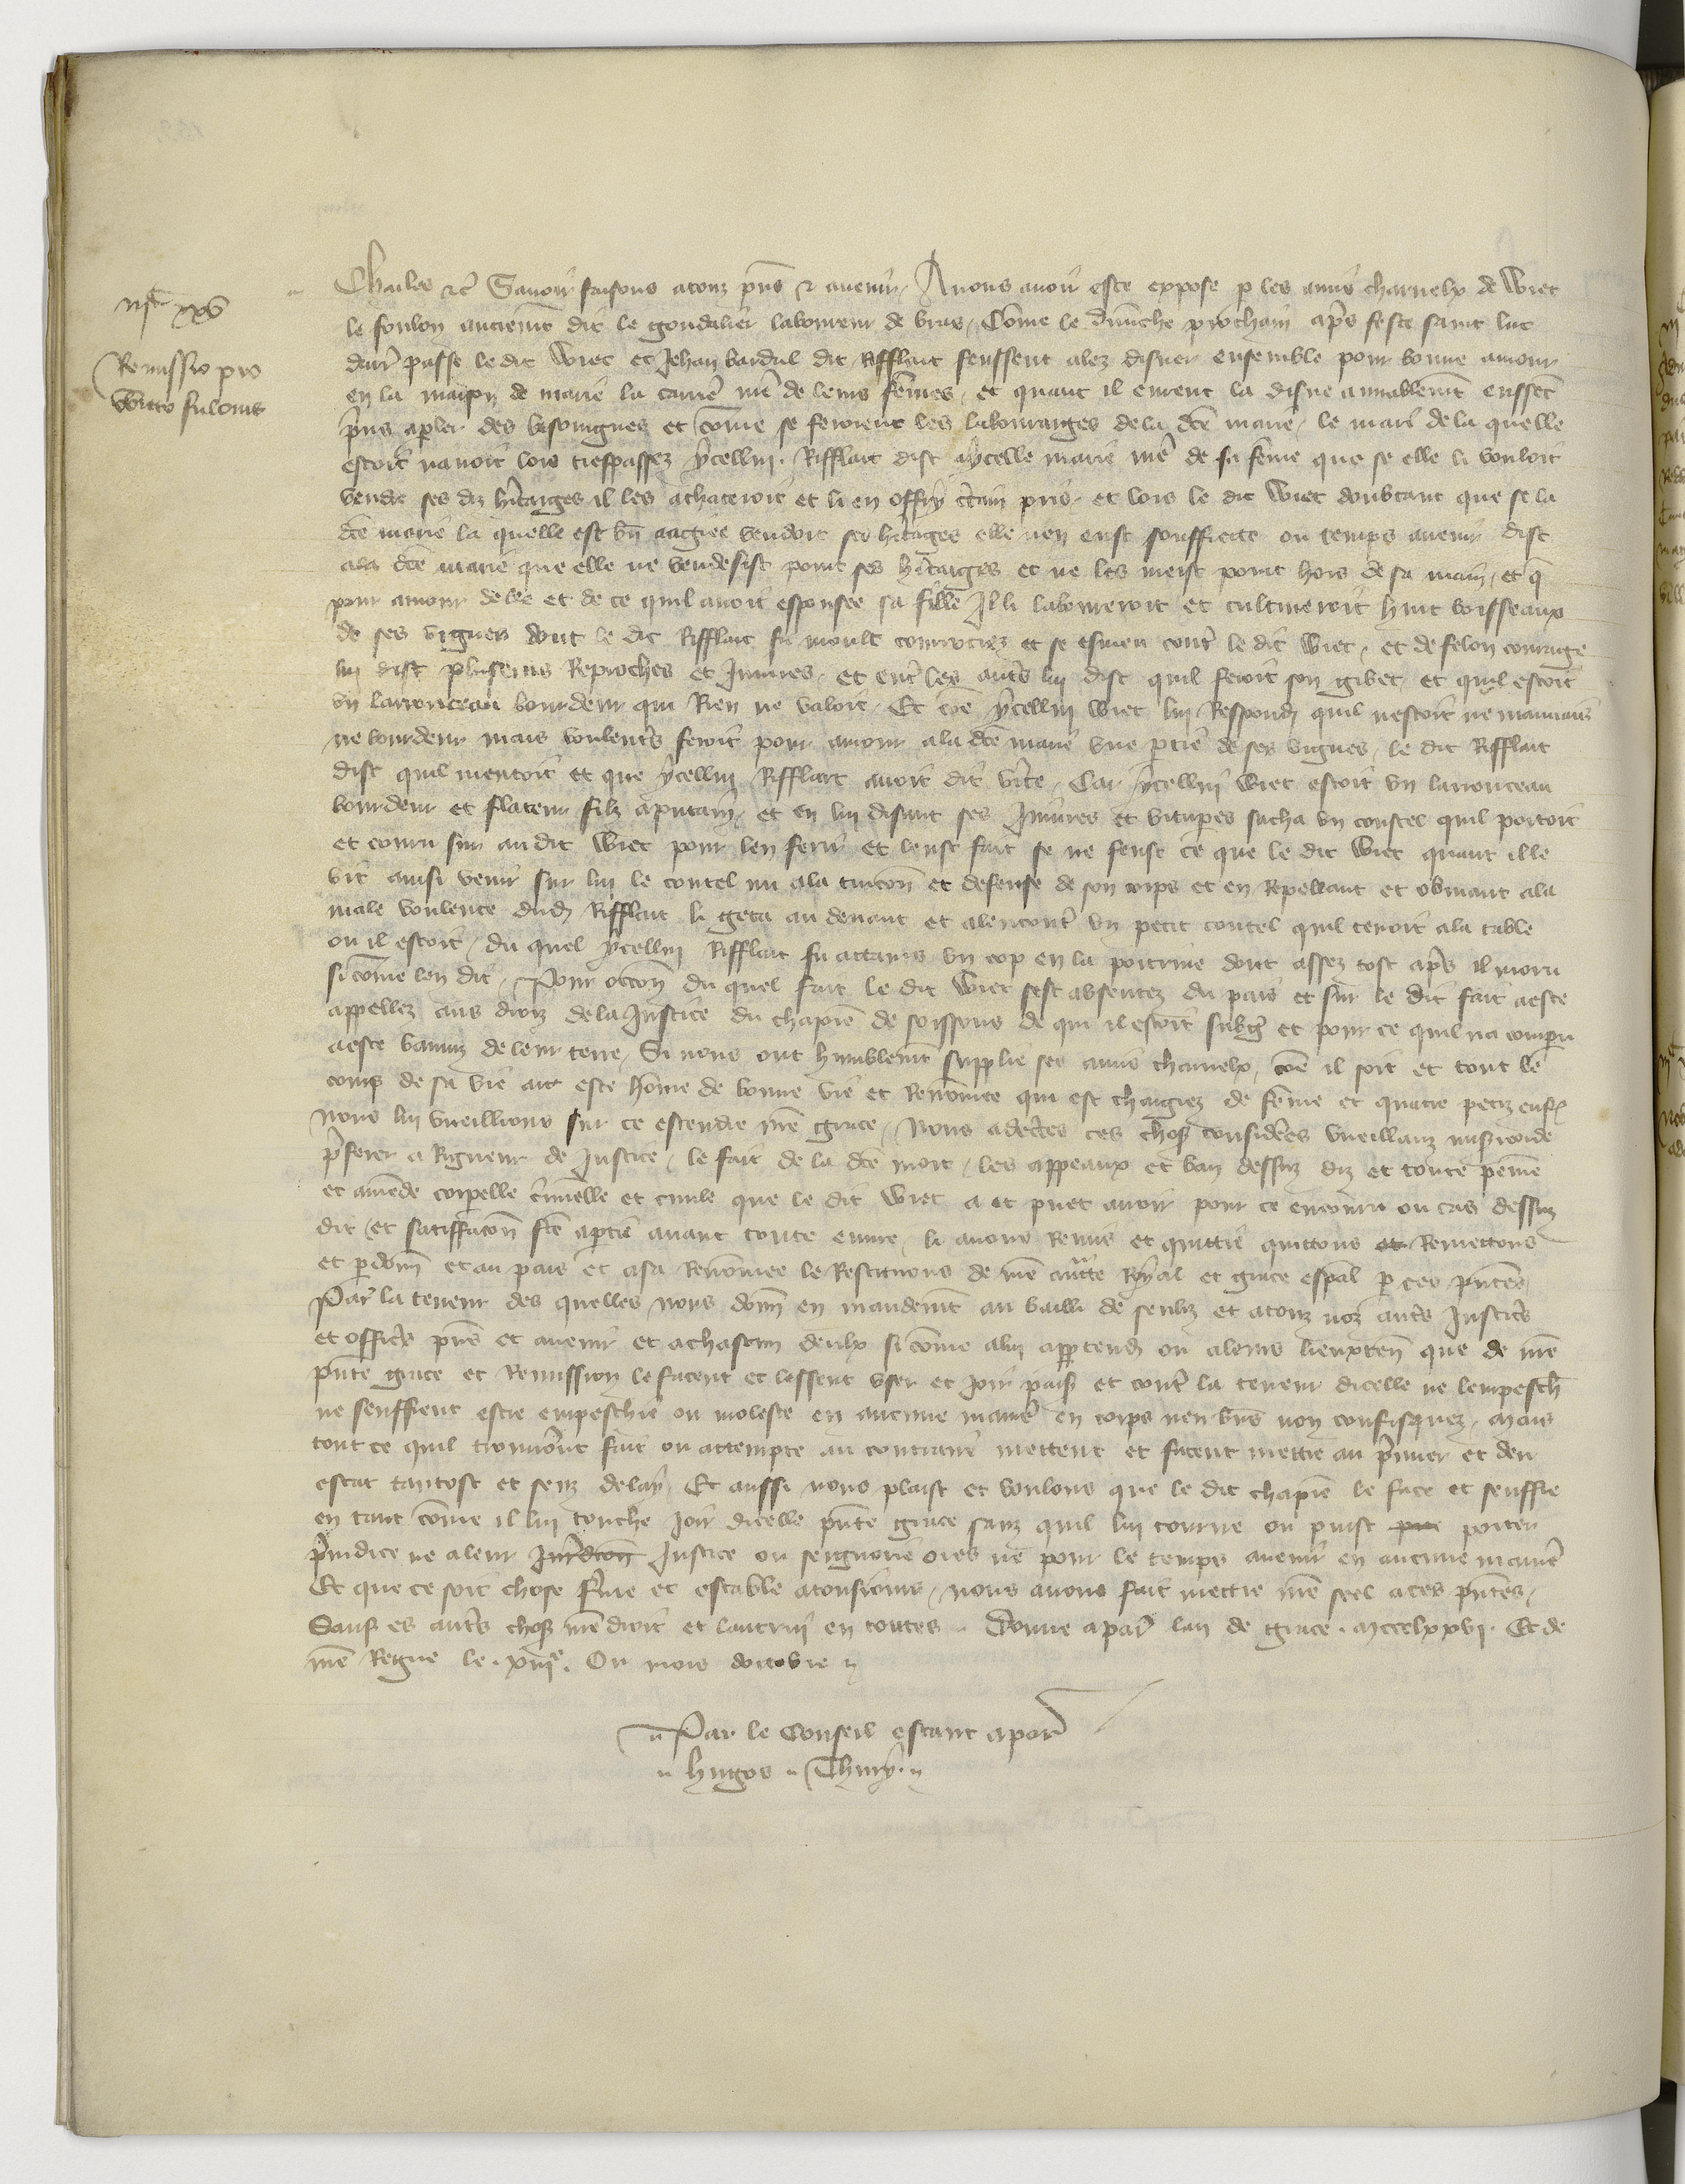 iijc xxv
Remissio pro
Wieto fulonis
Charles etc Savoir faisons a touz pns et avenir A nous avoir este expose p les amis charnelx de Wiet
le foulon autremt dit le goudalier laboureur de bras Come le dimenche prochain aps feste saint luc
darr passe le dit Wiet et Jehan bardul dit Rifflart feussent alez disner ensemble pour bonne amour
en la maison de marie la mere de leurs femes et quant il eurent la disne amiablemt eussent
pns a pler des besoingnes et come se feroient les labourages de la dce marie le mari de la quelle
estoit navoit lors trespassez ycellui Rifflart dist a ycelle marie me de sa feme que se elle li vouloit
vendre ses diz hitages il les achateroit et li en offry ctain pris et lors le dit Wiet doubtant que se la
dce marie la quelle est bn aagiee vendoit ses hitages elle nen eust souffrecte ou temps avenir dist
a la dce marie que elle ne vendesist point ses hitaiges et ne les meist point hors de sa main et q
pour amour delle et de ce quil avoit espousee sa fille Il li laboureroit et cultiveroit huit boisseaux
de ses vignes dont le dit Rifflart fu moult courrouciez et se esmeu cont le dit Wiet et de felon courage
lui dist pluseurs Reproches et Iniures et ent les auts lui dist quil feroit son gibet et quil estoit
un larronceau bourdeur qui Rien ne valoit Et coe ycellui Wiet lui Respondi quil nestoit ne mauvais
ne bourdeur mais voulents feroit pour amour a la dce marie une ptie de ses vignes le dit Rifflart
dist quil mentoit et que ycellui Rifflart avoit dit vite Car ycellui Wiet estoit un larronceau
bourdeur et flateur filz a putain et en lui disant ses Iniures et vitupes sacha un coustel quil portoit
et couru sur au dit Wiet pour len ferir et leust fait se ne feust ce que le dit Wiet quant il le
vit ainsi venir sur lui le coutel nu a la tuicon et defense de son corps et en Repellant et obviant a la
male voulente dud Rifflart li geta au devant et alencont un petit coutel quil tenoit a la table
ou il estoit du quel ycellui Rifflart fu attains un cop en la poitrine dont assez tost aps il moru
si come len dit Pour occon du quel fait le dit Wiet sest absentez du pais et sur le dit fait a este
appellez aus droiz de la Justice du chapitre de soissons de qui il estoit subget et pour ce quil na comparu
a este banniz de leur terre Si nous ont humblemt supplie ses amis charnelx coe il soit et tout le
temps de sa vie ait este home de bonne vie et Renomee qui est chargiez de feme et quatre petiz enfs
nous lui vueillions sur ce estendre nre grace Nous adectes ces choses consideres vueillanz misericorde
pferer a Rigueur de Justice le fait de la dce mort les appeaux et ban dessus diz et toute peine
et amende corpelle criminelle et civile que le dit Wiet a et puet avoir pour ce encouru ou cas dessus
dit et satiffacon fce a ptie avant toute euvre li avons Remis et quittie quittons et Remettons
et pdonn et au pais et a sa Renomee le Restituons de nre auctte Royal et grace espal p ces pntes
Par la teneur des quelles nous donn en mandemt au bailli de senliz et a touz noz auts Justics
et offics pns et avenir et a chascun deulx si come a lui apptend ou a leurs lieuxten que de nre
pnte grace et Remission le facent et lessent user et joir paisiblement et cont la teneur dicelle ne lempeschent
ne seuffrent estre empeschie ou moleste en aucune mane en corps nen biens non confisquez mais
tout ce quil trouveront fait ou attempte au contraire mettent et facent mettre au pmier et deu
estat tantost et senz delay Et aussi nous plaist et voulons que le dit chapitre le face et seuffre
en tant come il lui touche joir dicelle pnte grace sanz quil lui tourne ou puist porter
piudice ne a leur juridicon Justice ou seigneurie ores ne pour le temps avenir en aucune mane
Et que ce soit chose ferme et estable a tousiours nous avons fait mettre nre seel a ces pntes
Sauf es auts choses nre droit et lautrui en toutes Donne a Par lan de grace mccclxxvi Et de
nre Regne le xiije Ou mois doctobre
Par le Conseil estant a Par
Hugos Thury